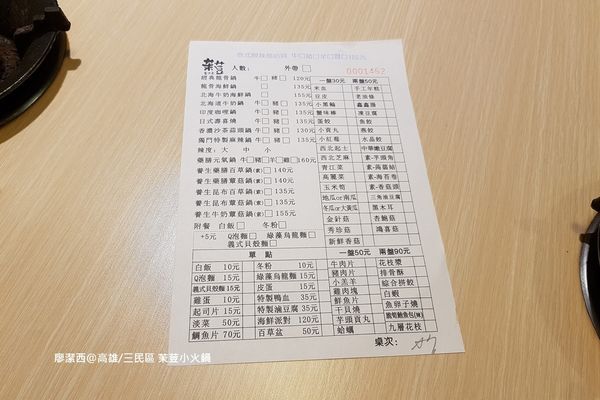 茱荳 人數： 外帶□
0001452
經典龍骨鍋 牛□ 豬□ 120元
龍骨海鮮鍋 □ 135元
北海牛奶海鮮鍋 □ 155元
北海道牛奶鍋 牛□ 豬□ 135元
印度咖哩鍋 牛□ 豬□ 135元
日式壽喜燒 牛□ 豬□ 135元
香濃沙茶蒜頭鍋 牛□ 豬□ 130元
獨門特製麻辣鍋 牛□ 豬□ 135元
辣度： 大 中 小
藥膳元氣鍋 牛□豬□羊□雞□160元
養生藥膳百草鍋(素)□140元
養生藥膳蕈菇鍋(素)□140元
養生昆布百草鍋(素)□135元
養生昆布蕈菇鍋(素)□135元
養生牛奶蕈菇鍋(素)□155元
附餐 白飯□ 冬粉□
+5元 Q泡麵□ 綠藻烏龍麵□
義式貝殼麵□
一盤30元 兩盤50元
米血 手工年糕
豆皮 老油條
小黑輪 鑫鑫腸
蟹味棒 凍豆腐
蛋餃 魚餃
小貢丸 燕餃
小紅莓 水晶餃
西北起士 中華嫩豆腐
西北芝麻 素-芋頭角
青江菜 素-蒟蒻結
高麗菜 素-海苔卷
玉米筍 素-香菇頭
地瓜or南瓜 三角油豆腐
冬瓜or大黃瓜 黑木耳
金針菇 杏鮑菇
秀珍菇 鴻喜菇
新鮮香菇
單 點
白飯 10元 冬粉 10元
Q泡麵 15元 綠藻烏龍麵 15元
義式貝殼麵 15元 皮蛋 15元
雞蛋 10元 特製鴨血 35元
起司片 15元 特製滷豆腐 35元
淡菜 50元 海鮮派對 120元
鯛魚片 70元 百草盆 50元
一盤50元 兩盤90元
牛肉片 花枝漿
豬肉片 排骨酥
小羔羊 綜合拼餃
雞肉塊 白蝦
鮮魚片 魚卵子燒
干貝燒 脆筍鮑魚包(W)
芋頭貢丸 九層花枝
蛤蠣
桌次：
廖潔西@高雄/三民區 茱荳小火鍋